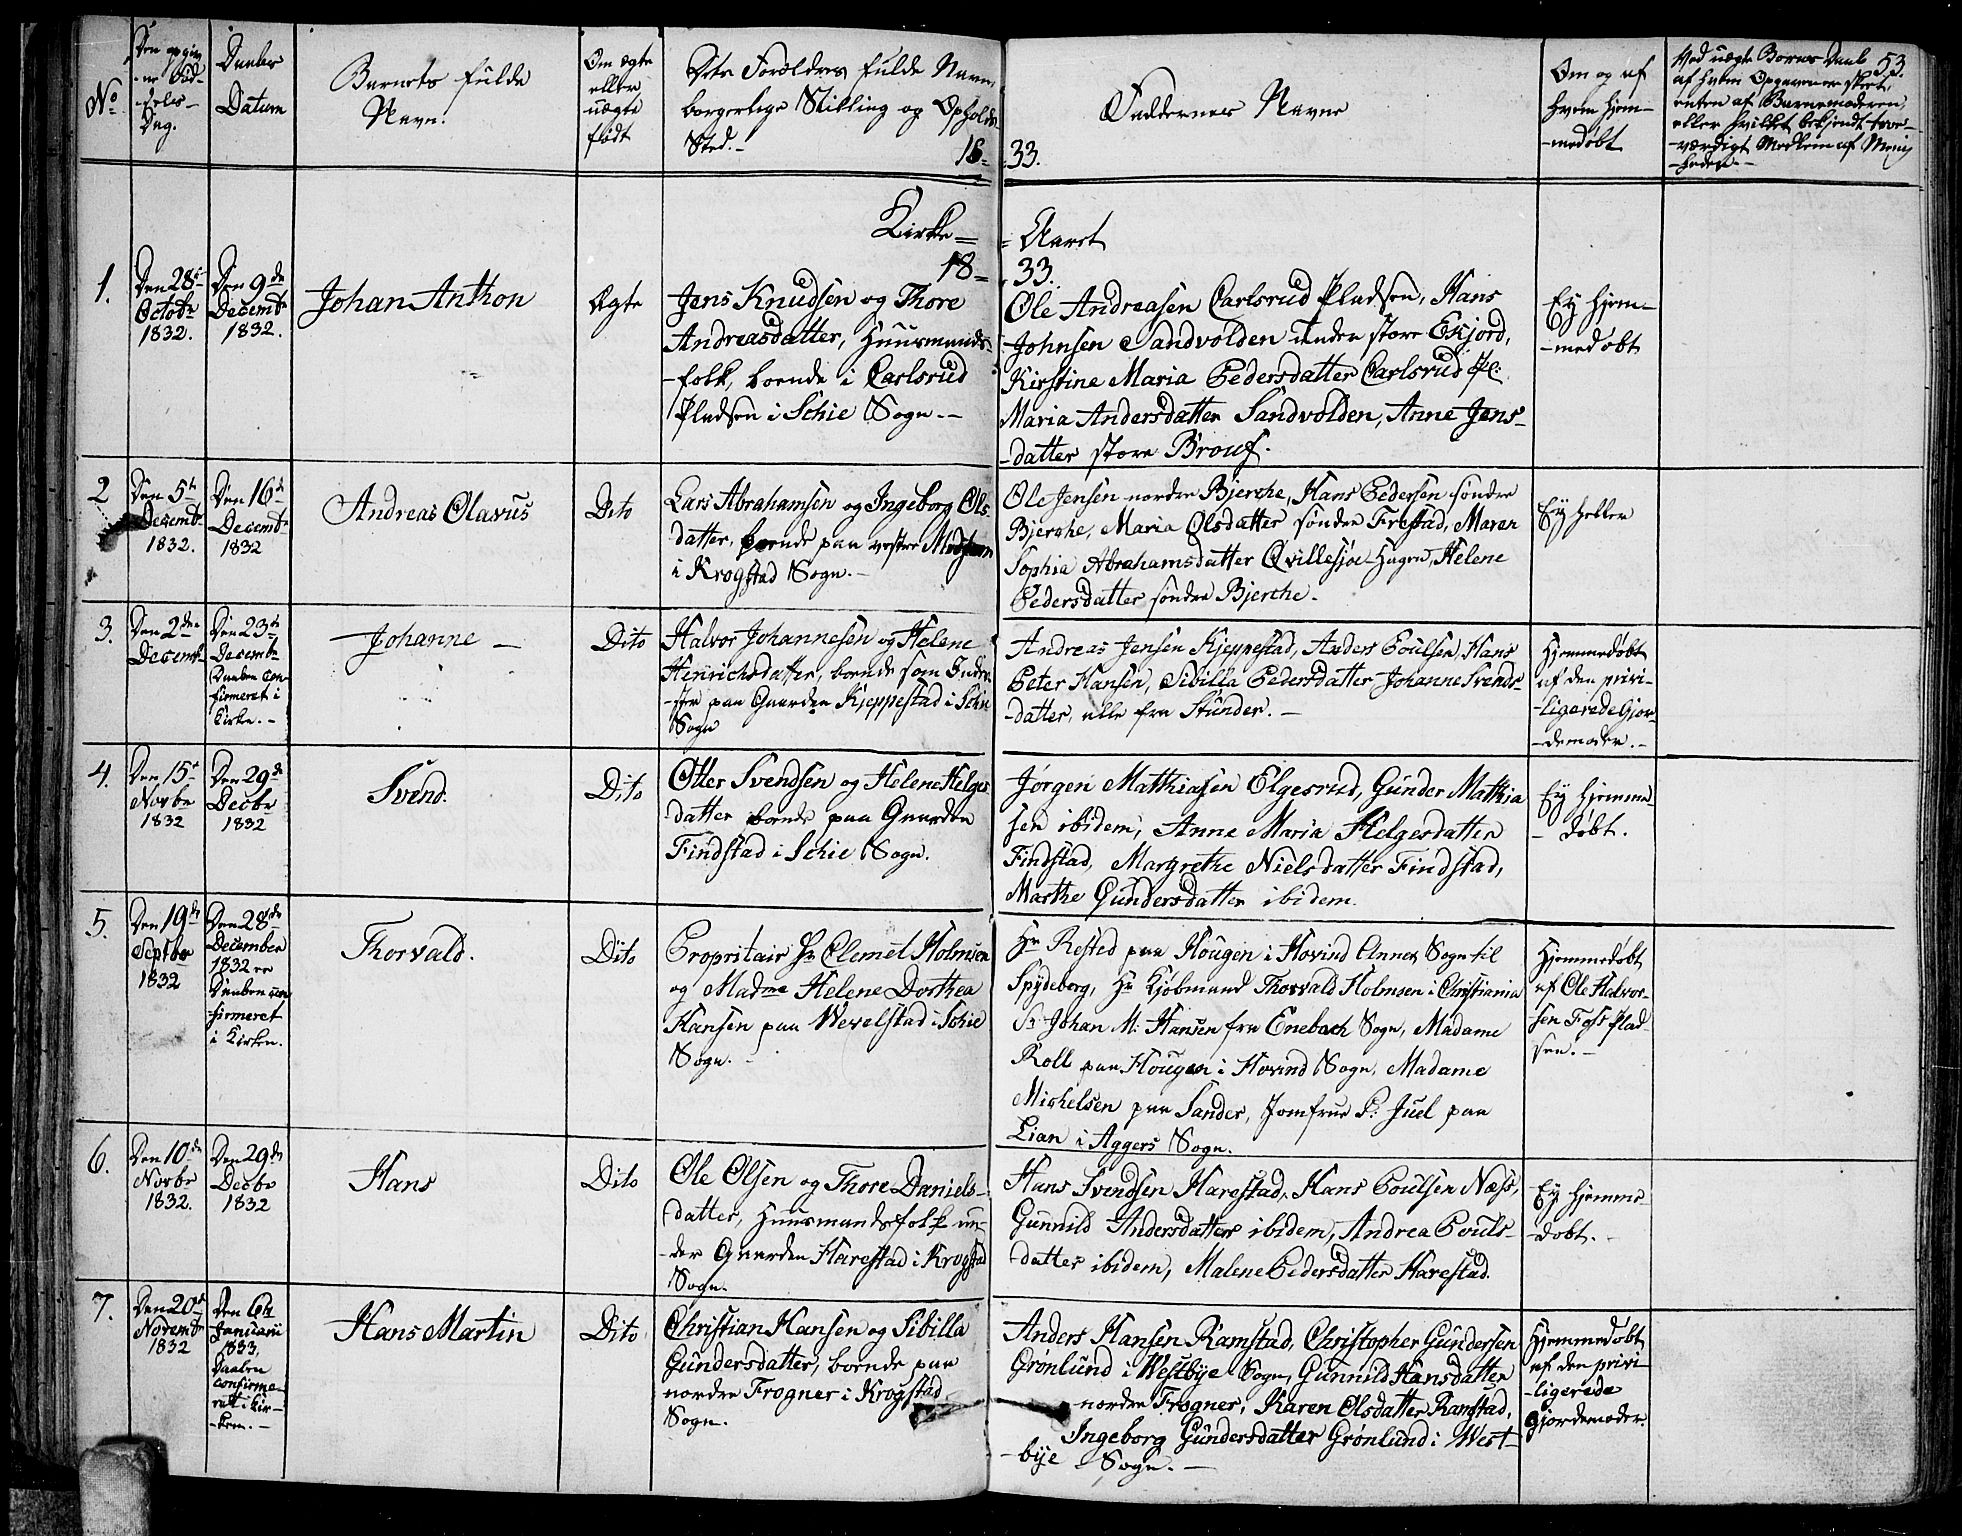 53.
No
Den opgiv-
ne Fød-
sels-
Dag.
Daabs
Datum
Barnets fulde
Navn.
Om ægte
eller
uægte
født
Dets Forældres fulde Navn,
borgerlige Stilling og Opholds
Sted.-
18=
Faddernes Navne
=33.
Om og af
hvem hjem-
medøbt
Ved uægte Børns Daab
af hvem Opgaven er skeet,
enten af Barnemoderen,
eller hvilket bekjendt tro-
-værdigt Medlem af Menig
-heden-
Kirke=
=Aaret
18=
=33.
1.
Den 28de
Octobr
1832.
Den 9de
Decembr
1832.
Johan Anthon
Ægte
Jens Knudsen og Thore
Andreasdatter, Huusmands-
-folk, boende i Carlsrud
Pladsen i Schie Sogn.-
Ole Andreasen Carlsrud Pladsen, Hans
Johnsen Sandvolden under store Ekjord,
Kirstine Maria Pedersdatter Carlsrud Pl:
Maria Andersdatter Sandvolden, Anne Jens-
-datter store Brouf.
Ey hjem-
-medøbt
2
Den 5te
Decembr
1832.
Den 16de
Decembr
1832
Andreas Olavus
Dito
Lars Abrahamsen og Ingeborg Ols-
datter, boende paa vestre
i Krogstad Sogn.-
Ole Jensen nordre Bjerche, Hans Pedersen søndre
Bjerche, Maria Olsdatter søndre Frestad, Maren
Sophia Abrahamsdatter Qvillesjøe-Hagen, Helene
Pedersdatter søndre Bjerche.
Ey heller
3.
Den 2den
Decembr
Den 23de
Decembr
Daaben con-
firmeret i
Kirke.-
Johanne -
Dito
Halvor Johannesen og Helene
Henrichsdatter, boende som Inder-
-ster paa Gaarden Kjeppestad i Schie
Sogn
Andreas Jensen Kjeppestad, Anders Poulsen, Hans
Peter Hansen, Sibilla Pedersdatter, Johanne Svends-
-datter, alle fra Stunder.-
Hjemmedøbt
af den privi-
-ligerede Gjor-
-demoder.-
4.
Den 15de
Novbr
1832
Den 29de
Decbr
1832
Svend.
Dito
Otter Svendsen og Helene Helges
datter boende paa Gaarden
Findstad i Schie Sogn.
Jørgen Matthiasen Elgesrud, Gunder Mathia
sen ibidem, Anne Maria Helgesdatter
Findstad, Margrethe Nielsdatter Findstad,
Marthe Gundersdatter ibidem.
Ey hjemme-
-døbt.
5.
Den 19de
Septbr
1832
Den 28de
December
1832 er
Daaben con
firmeret
i Kirken.
Thorvald.
Dito
Propritair Sr Clemet Holmsen
og Madme Helene Dorthea
Hansen paa Wevelstad i Schie
Sogn.
Hr Rested paa Hougen i Hovind Annex Sogn til
Spydeberg, Hr Kjøbmand Thorvald Holmsen i Christiania
Sr Johan M: Hansen fra Enebach Sogn, Madame
Roll paa Hougen i Hovind Sogn, Madame
Michelsen paa Sander, Jomfrue P: Juel paa
Lian i Aggers Sogn.
Hjemmedøbt
af Ole Halvor-
sen Foss Plad-
sen.-
6.
Den 10de
Novbr
1832.
Den 29de
Decbr
1832
Hans
Dito
Ole Olsen og Thore Daniels-
datter, Huusmandsfolk un-
-der Gaarden Harestad i Krogstad
Sogn.
Hans Svendsen Harestad, Hans Poulsen Næss,
Gunnild Andersdatter ibidem, Andrea Pouls-
datter ibidem, Malene Pedersdatter Harestad.
Ey hjemme-
-døbt.
7.
Den 20de
Novembr
1832
Den 6te
Januarii
1833.
Daaben
confirme-
ret i Kir-
-ken.-
Hans Martin
Dito
Christian Hansen og Sibilla
Gundersdatter, boende paa
nordre Frogner i Krogstad
Sogn.
Anders Hansen Ramstad, Christopher Gundersen
Grønlund i Westbye Sogn, Gunnild Hansdatter
nordre Frogner, Karen Olsdatter Ramstad,
Ingeborg Gundersdatter Grønlund i West-
-bye Sogn.-
Hjemmedøbt
af den privi-
-ligerede
Gjordemoder.